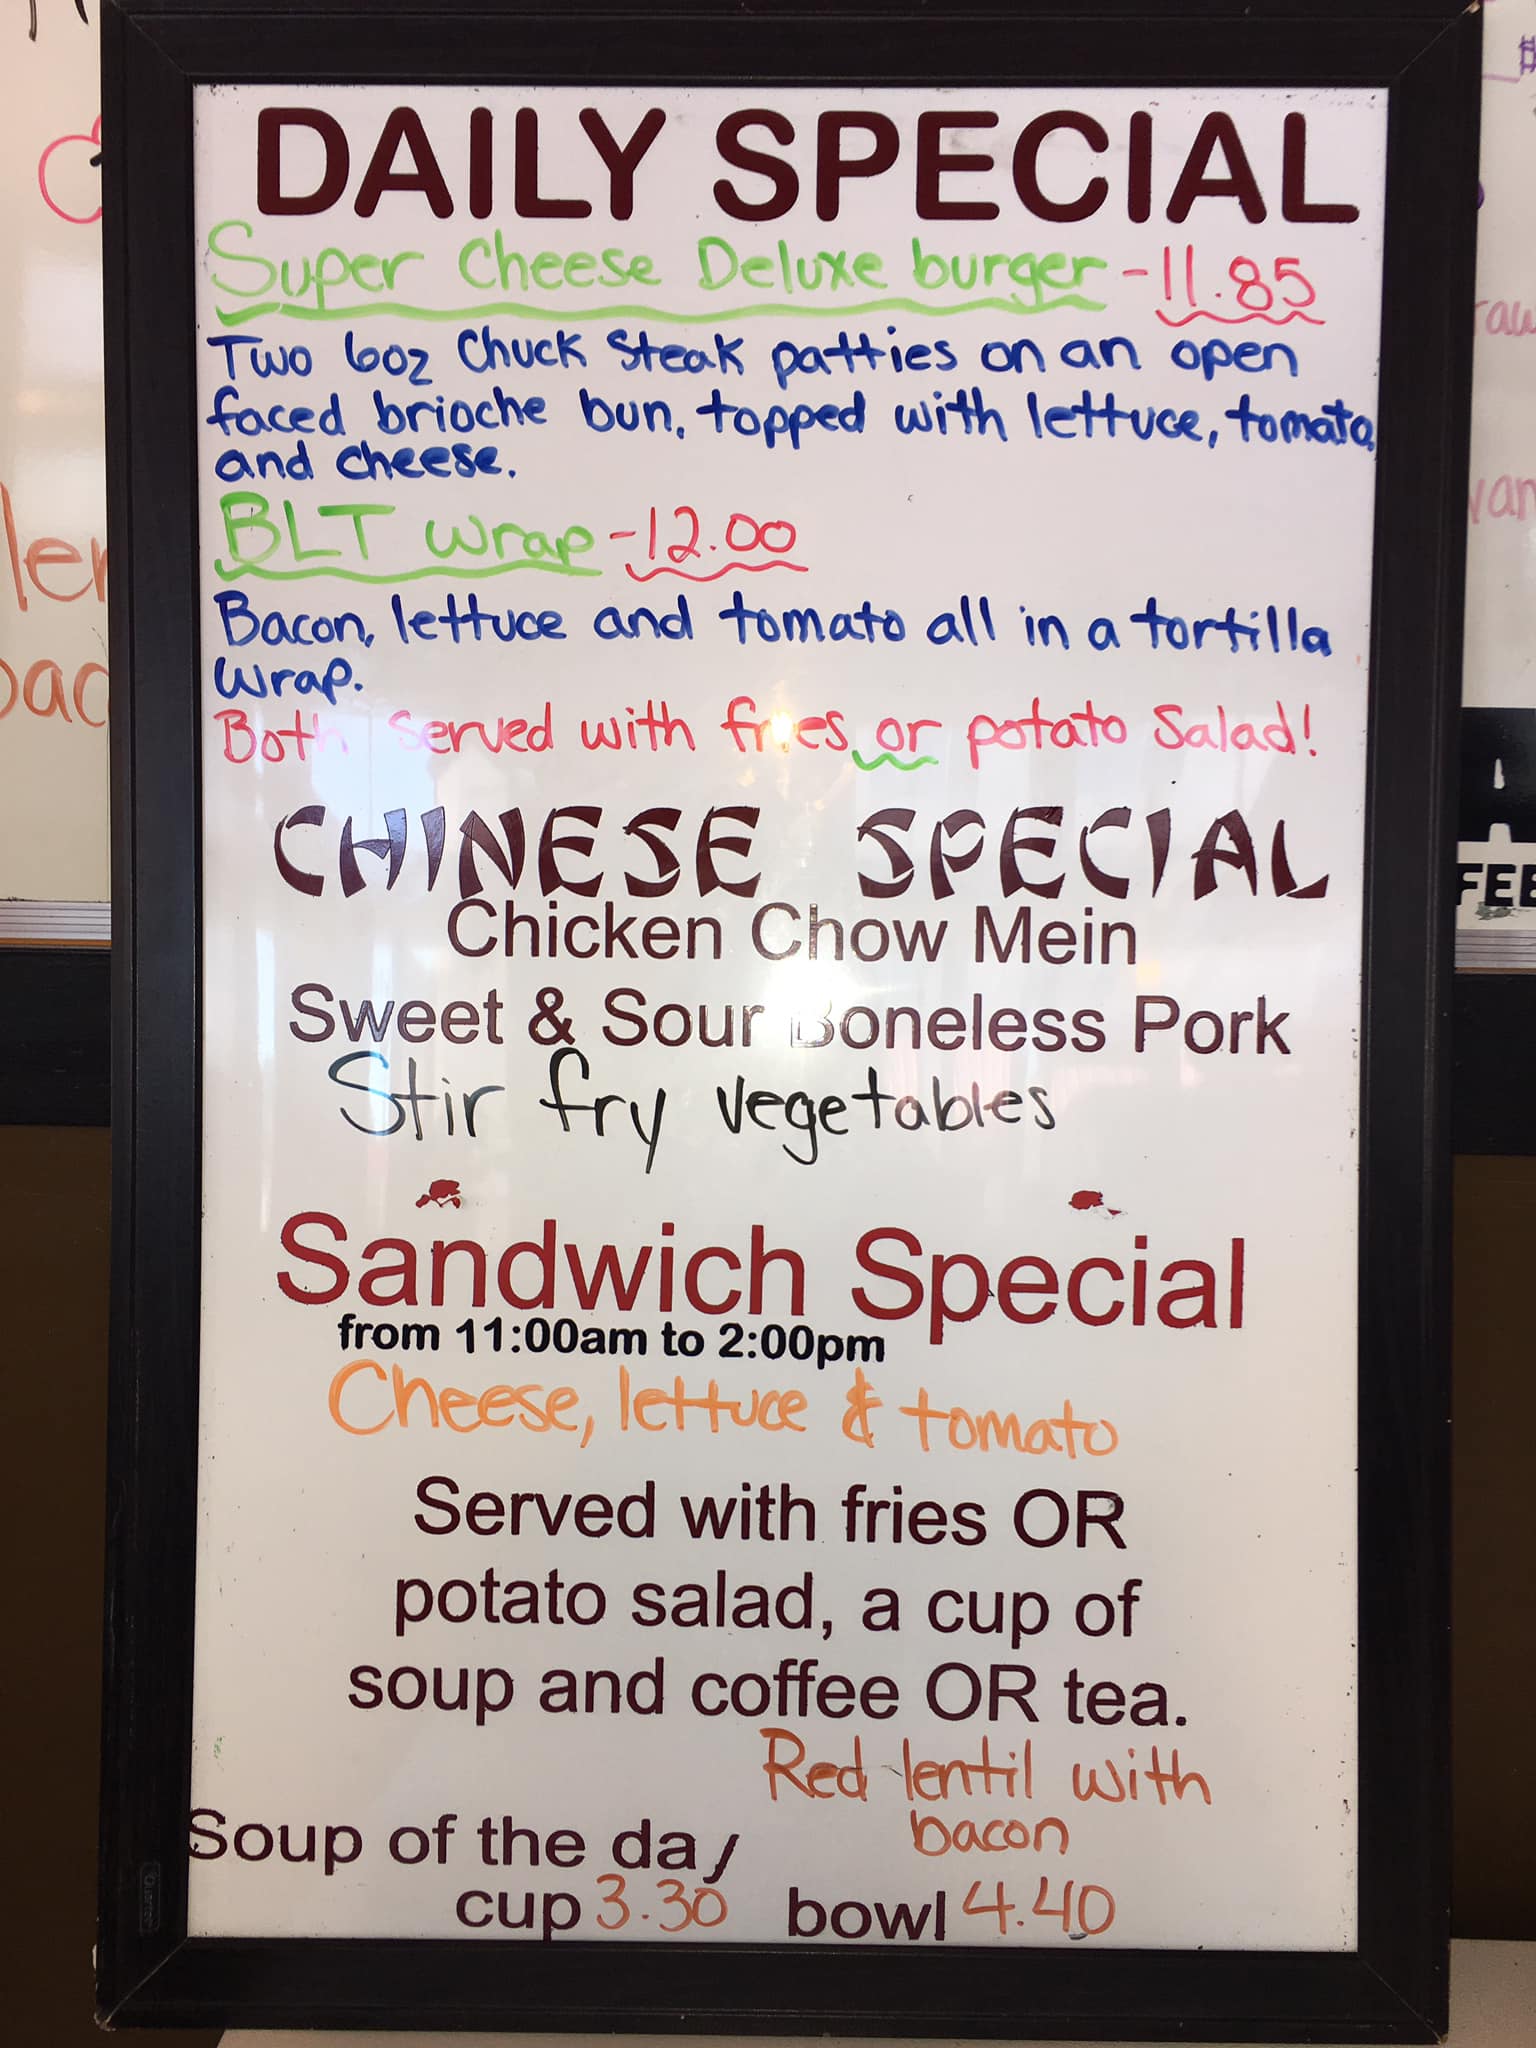 DAILY SPECIAL
Super Cheese Deluxe burger - 11.85
Two 6oz Chuck Steak patties on an open
faced brioche bun, topped with lettuce, tomato,
and cheese.
BLT wrap - 12.00
Bacon, lettuce and tomato all in a tortilla
wrap.
Both served with fries or potato Salad!
CHINESE SPECIAL
Chicken Chow Mein
Sweet & Sour Boneless Pork
Stir fry vegetables
Sandwich Special
from 11:00am to 2:00pm
Cheese, lettuce & tomato
Served with fries OR
potato salad, a cup of
soup and coffee OR tea.
Red lentil with
bacon
Soup of the day
cup 3.30 bowl 4.40